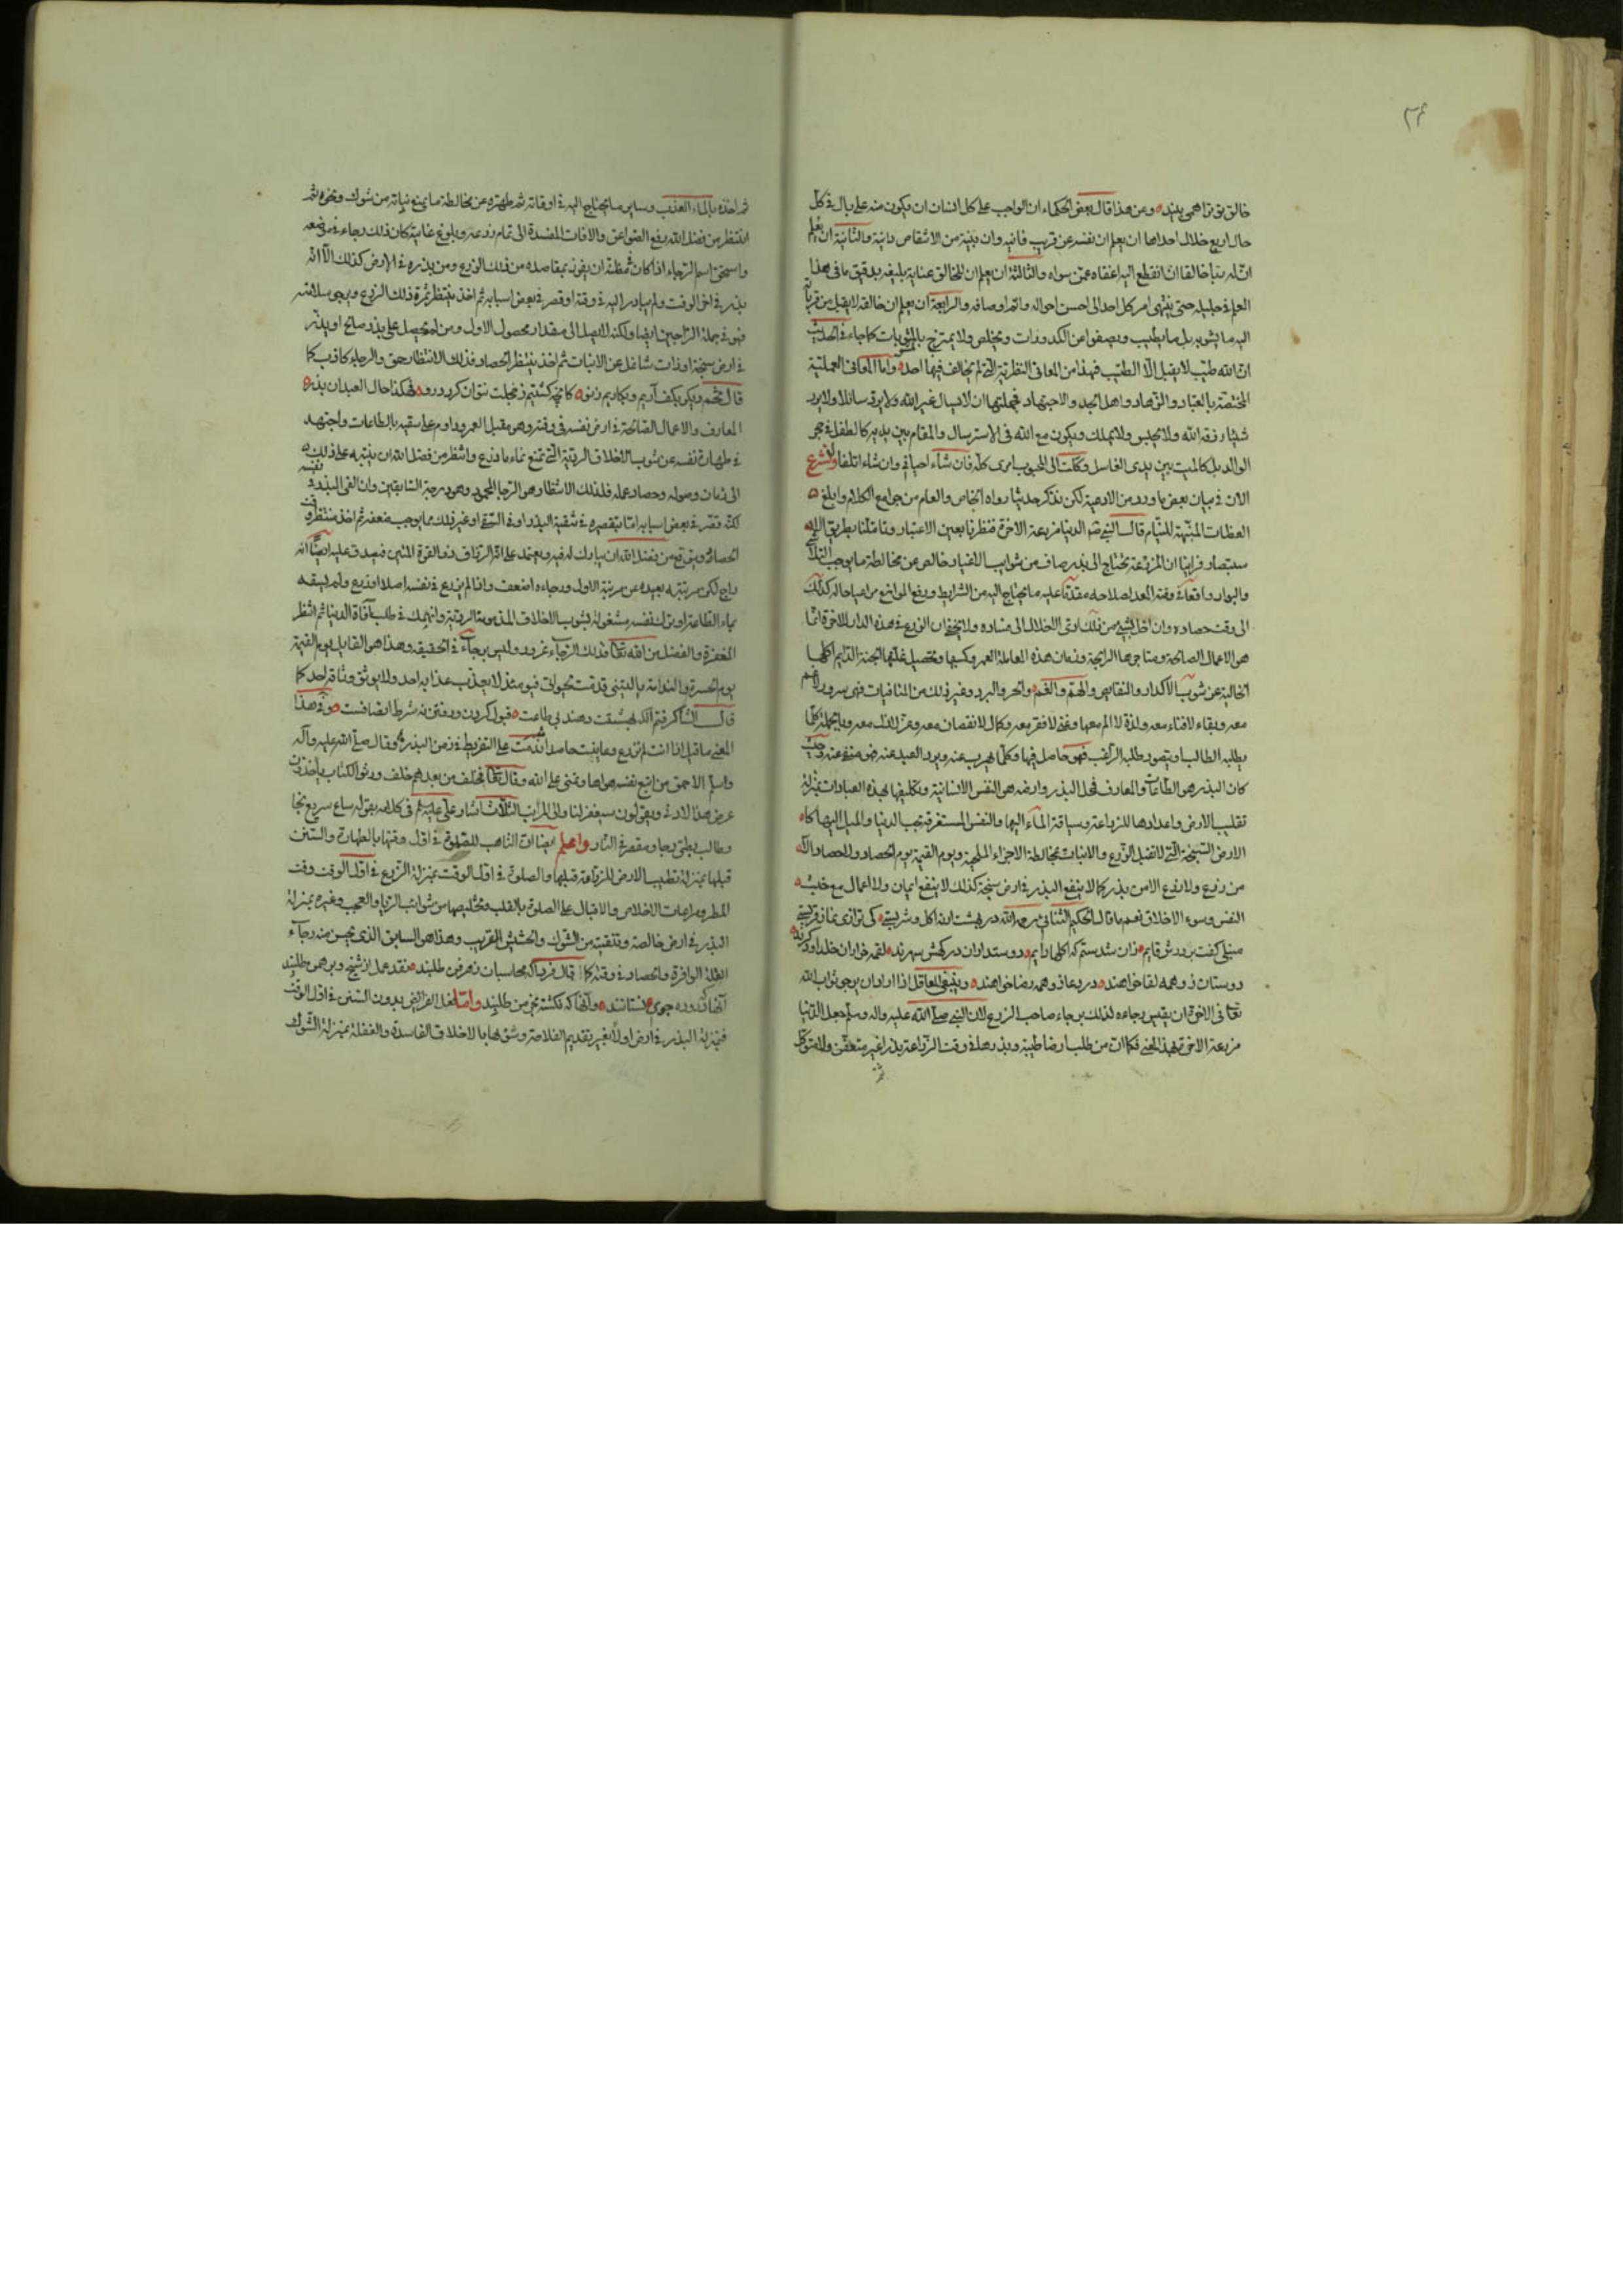 ۲۶
خالق تو ترا همی بیند وعن هذا قال بعض الحکماء ان الواجب علی کل انسان ان یکون منه علی بال فی کل
حال اربع خلال احداها ان یعلم ان نفسه عن قریب فانیه وان بنیته من الانتقاص دانیة والثانیة ان یعلم
انّ له ربا خالقا ان انقطع الیه اغناه عمّن سواه والثالثة ان یعلم ان للخالق عنایة بلیغه بدقیق ما فی هذا
العلم وجلیله حتی ینتهی امر کل احد الی احسن احواله واتم اوصافه والرابعة ان یعلم ان خالقه لا یقبل من قرباته
الیه ما یشوبه بل ما یطیب ویصفوا عن الکدورات ویخلص ولا یمتزج بالمشوبات کما جاء فی الحدیث
انّ الله طیّب لا یقبل الّا الطیّب فهذا من المعانی النظریة التی لم یخالف فیها احد واما المعانی العملیّة
المختصّة بالعبّاد والزّهاد واهل الجد والاجتهاد فجملتها ان لا یسال غیر الله ولا یردّ سائلا ولا یرد
شیئا رزقه الله ولا یحبس ولا یملک ویکون مع الله فی الاسترسال والمقام بین یدیه کالطفل فی حجر
الوالد بل کالمیت بین یدی الغاسل وکلت الی المحبوب امری کلّه فان شاء احیانی وان شاء اتلفا ولنشرع
الان فی بیان بعض ما ورد من الادعیة لکن نذکر حدیثا رواه الخاص والعام من جوامع الکلام وابلغ
العظات المنبّهة للنیّام قال النبی صم الدنیا مزرعة الاخرة فنظرنا بعین الاعتبار وتاملنا بطریق الا
ستبصار فراینا ان المزرعة تحتاج الی بذر صاف من شوایب الاغیار خالص عن مخالطة ما یوجب التلاشی
والبوار واقعا فی وقته المعد لاصلاحه مقدّما علیه ما یحتاج الیه من الشرایط ورفع الموانع مراعیا حاله کذلک
الی وقت حصاده وان اخل بشیء من ذلک ادّی الاخلال الی فساده ولا یخفی ان الزرع فی هذه الدار للاخرة انّما
هو الاعمال الصالحة ومتاجرها الرابحة وزمان هذه المعاملة العمر وکسبها وتحصیل غلتها الجنة الدّایم اکلها
الخالیة عن شوب الاکدار والنقایص والهمّ والغم والحر والبرد وغیر ذلک من المنافیات فهی سرور لا غم
معه وبقاء لا فناء معه ولذة لا الم معها وغنی لا فقر معه وکمال لا نقصان معه وعز لا ذل معه وبالجملة کلّما
یطلبه الطالب ویتصور طلبه الراغب فهو حاصل فیها وکلّما یهرب عنه ویرد العبد عنه فهو منفی عنه وحیث
کان البذر هو الطاعات والمعارف فمحل البذر وارضه هو النفس الانسانیة وتکلیفها بهذه العبادات بمنزلة
تقلیب الارض واعدادها للزراعة وسیاقة الماء الیها والنفس المستغرقة بحب الدنیا والمیل الیها کا
لارض السّبخة التی لا تقبل الزّرع والانبات بمخالطة الاجزاء الملحیة ویوم القیمة یوم الحصاد ولا حصاد الّا
من زرع ولا زرع الا من بذر وکما لا ینفع البذر فی ارض سبخة کذلک لا ینفع ایمان ولا اعمال مع خبث
النفس وسوء الاخلاق نعم ما قال الحکیم السّنائی رحمه الله در بهشت ارنه اکل وشربستی کی ترا زی نماز قربستی
منبلی گفت بر درش قایم زان شدستم که اکلها دایم دوستداران درگهش سهرند لقمه خواران خلد او دگرند
دوستان زو همه لقا خواهند در دعا زو همه رضا خواهند وینبغی للعاقل اذا اراد ان یرجو ثواب الله
تعا فی الاخرة ان یقیس رجاءه لذلک برجاء صاحب الزرع لان النبی صلّی الله علیه واله وسلّم جعل الدّنیا
مزرعة الاخرة لهذا المعنی فکما انّ من طلب ارضا طیبة وبذرها فی وقت الزّراعة بذرا غیر متعفّن ولا متوکّل
ثم
ثم امدّه بالماء العذب وسایر ما یحتاج الیه فی اوقاته ثم طهّره عن مخالطة ما یمنع نباته من شوک ونحوه ثم
انتظر من فضل الله رفع الصواعق والافات المفسدة الی تمام زرعه وبلوغ غایته کان ذلک رجاء فی موضعه
واستحق اسم الرّجاء اذا کان فی مظنّة ان یفوز بمقاصده من ذلک الزرع ومن بذره فی الارض کذلک الّا انّه
بذر فی اخر الوقت ولم یبادر الیه فی وقته او قصر فی بعض اسبابه ثم اخذ ینتظر ثمرة ذلک الزرع ویرجو سلامته
فهو فی جملة الرّاجین ایضا ولکنه لا یصل الی مقدار محصول الاول ومن لم یحصل علی بذر صالح او بذر
فی ارض سبخة او ذات شاغل عن الانبات ثم اخذ ینتظر الحصاد فذلک الانتظار حمق والرجاء کاذب کما
المعارف والاعمال الصّالحة فی ارض نفسه فی وقته وهو مقبل العمر وداوم علی سقیه بالطاعات واجتهد
فی طهارة نفسه عن شوب الاخلاق الردیة التی تمنع نماء ما زرع وانتظر من فضل الله ان یثبته علی ذلک
الی زمان وصوله وحصاد عمله فذلک الانتظار هو الرجا المحمود وهو درجة السّابقین وان القی البذر فی نفسه
لکنّه قصّر فی بعض اسبابه امّا بتقصیره فی تنقیة البذر او فی السّقی او غیر ذلک مما یوجب ضعفه ثم اخذ ینتظر وقت
الحصاد ویتوقع من فضل الله ان یبارک له فیه ویعتمد علی انّه الرزّاق ذو القوة المتین فیصدق علیه ایضا انّه
راج لکن مرتبته بعیده عن مرتبة الاول ورجاءه اضعف واذا لم یزرع فی نفسه اصلا او زرع ولم یسقه
بماء الطّاعة او ترک نفسه مشغولة بشوب الاخلاق المذمومة الردیّة وانهمک فی طلب افات الدنیا ثم انتظر
المغفرة والفضل من الله تعا فذلک الرّجاء غرور ولیس برجاء فی الحقیقة وهذا هو القایل یوم القیمة
یوم الحسرة والندامة یا لیتنی قدمت لحیوتی فیومئذ لا یعذب عذابه احد ولا یوثق وثاقه احد کما
المعنی ما قیل اذا انت لم تزرع وعاینت حاصدا ندمت علی التفریط فی زمن البذر وقال صلّی الله علیه وآله
وسلم الاحمق من اتبع نفسه هواها وتمنی علی الله وقال تعا فخلف من بعدهم خلف ورثوا الکتاب یاخذون
عرض هذا الادنی ویقولون سیغفر لنا والی المراتب الثلاث اشار علی علیه السلم فی کلامه بقوله ساع سریع نجا
وطالب بطیء رجا ومقصر فی النّار واعلم ایضا انّ التاهب للصّلوة فی اوّل وقتها بالطهارة والسنن
قبلها بمنزلة تطییب الارض للزراعة قبلها والصلوة فی اوّل الوقت بمنزلة الزرع فی اوّل الوقت وقت
المطر ومراعات الاخلاص والاقبال علی الصلوة بالقلب وتخلیصها من شوائب الریا والعجب وغیره بمنزلة
البذر فی ارض خالصة وتنقیته من الشوک والحشیش الغریب وهذا هو السابق الذی یحسن منه رجاء
الغلة الوافرة والحصاد فی وقته کما قال فردا که محاسبان زهر فن طلبند نقد عمل از شیخ و برهمن طلبند
آنها که دروده جوی نستانند وآنها که نکشته خرمن طلبند وامّا فعل الفرائض بدون السّنن فی اوّل الوقت
فبمنزلة البذر فی ارض اولا بغیر تقدیم الفلاحة وشوبها بالاخلاق الفاسدة والغفلة بمنزلة الشّوک